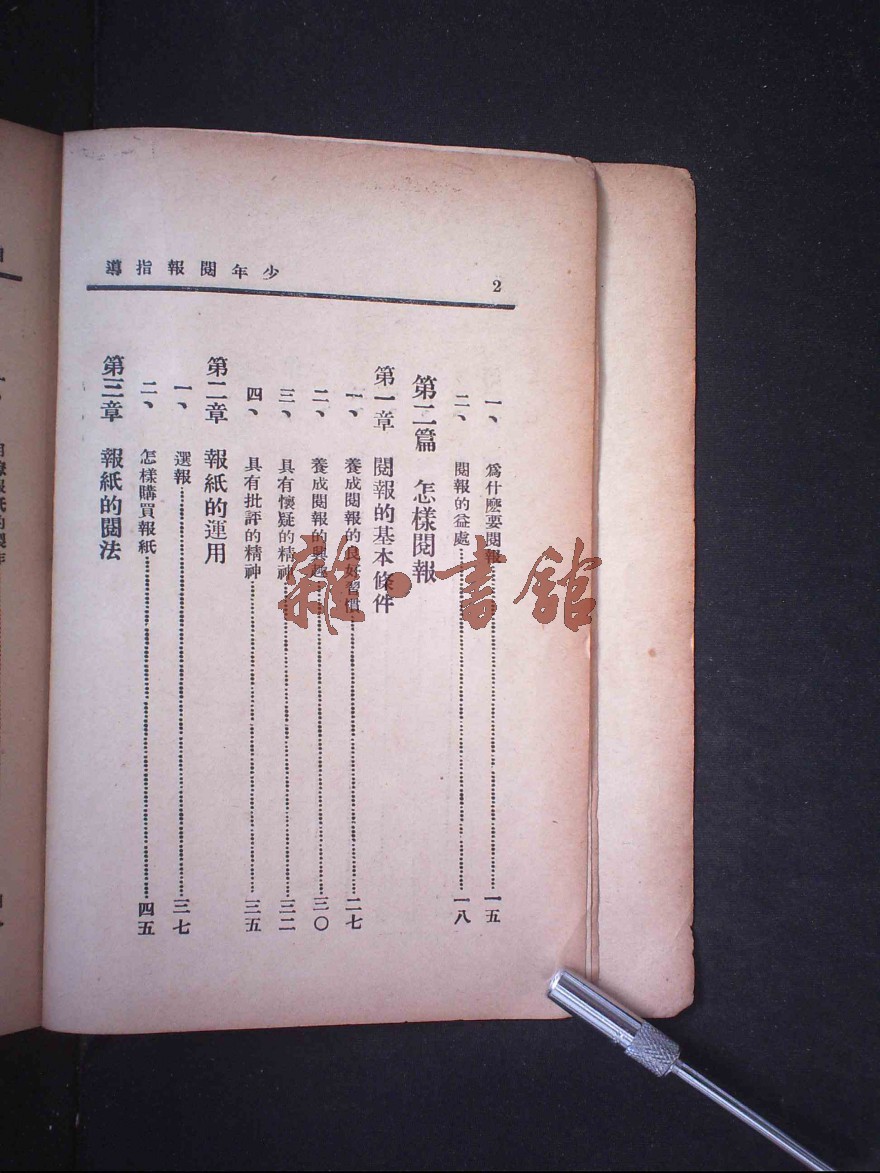 少年閱報指導
2
一、爲什麽要閱報……一五
二、閱報的益處……一八
第二篇 怎樣閱報
第一章 閱報的基本條件
一、養成閱報的良好習慣……二七
二、養成閱報的興趣……三〇
三、具有懷疑的精神……三二
四、具有批評的精神……三五
第二章 報紙的運用
一、選報……三七
二、怎樣購買報紙……四五
第三章 報紙的閱法
雜·書館